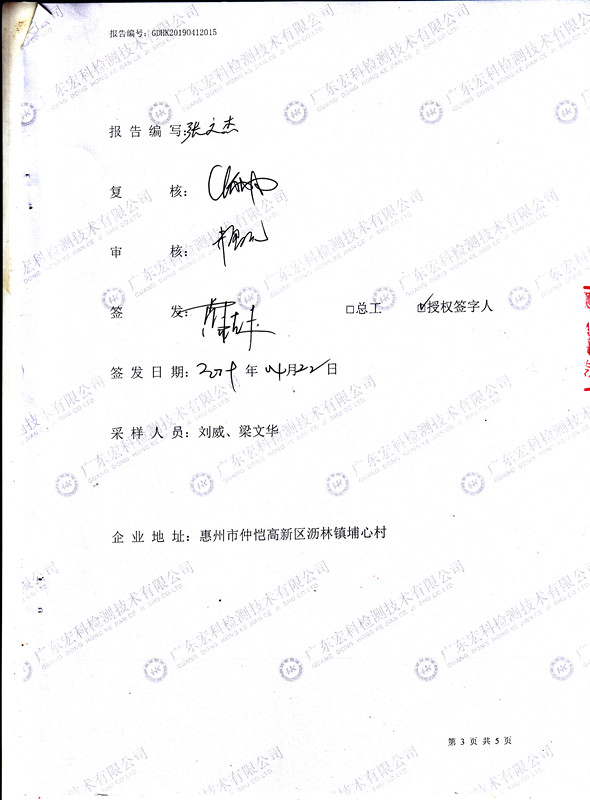 报告编号: GDHK20190412015
报 告 编 写: 张文杰
复 核:
审 核:
签 发: □总工 ☑授权签字人
签 发 日 期: 2019 年 04 月 22 日
采 样 人 员: 刘威、梁文华
企 业 地 址: 惠州市仲恺高新区沥林镇埔心村
第 3 页 共 5 页
广东宏科检测技术有限公司
GUANG DONG HONG KE JIAN CE JI SHU CO.LTD